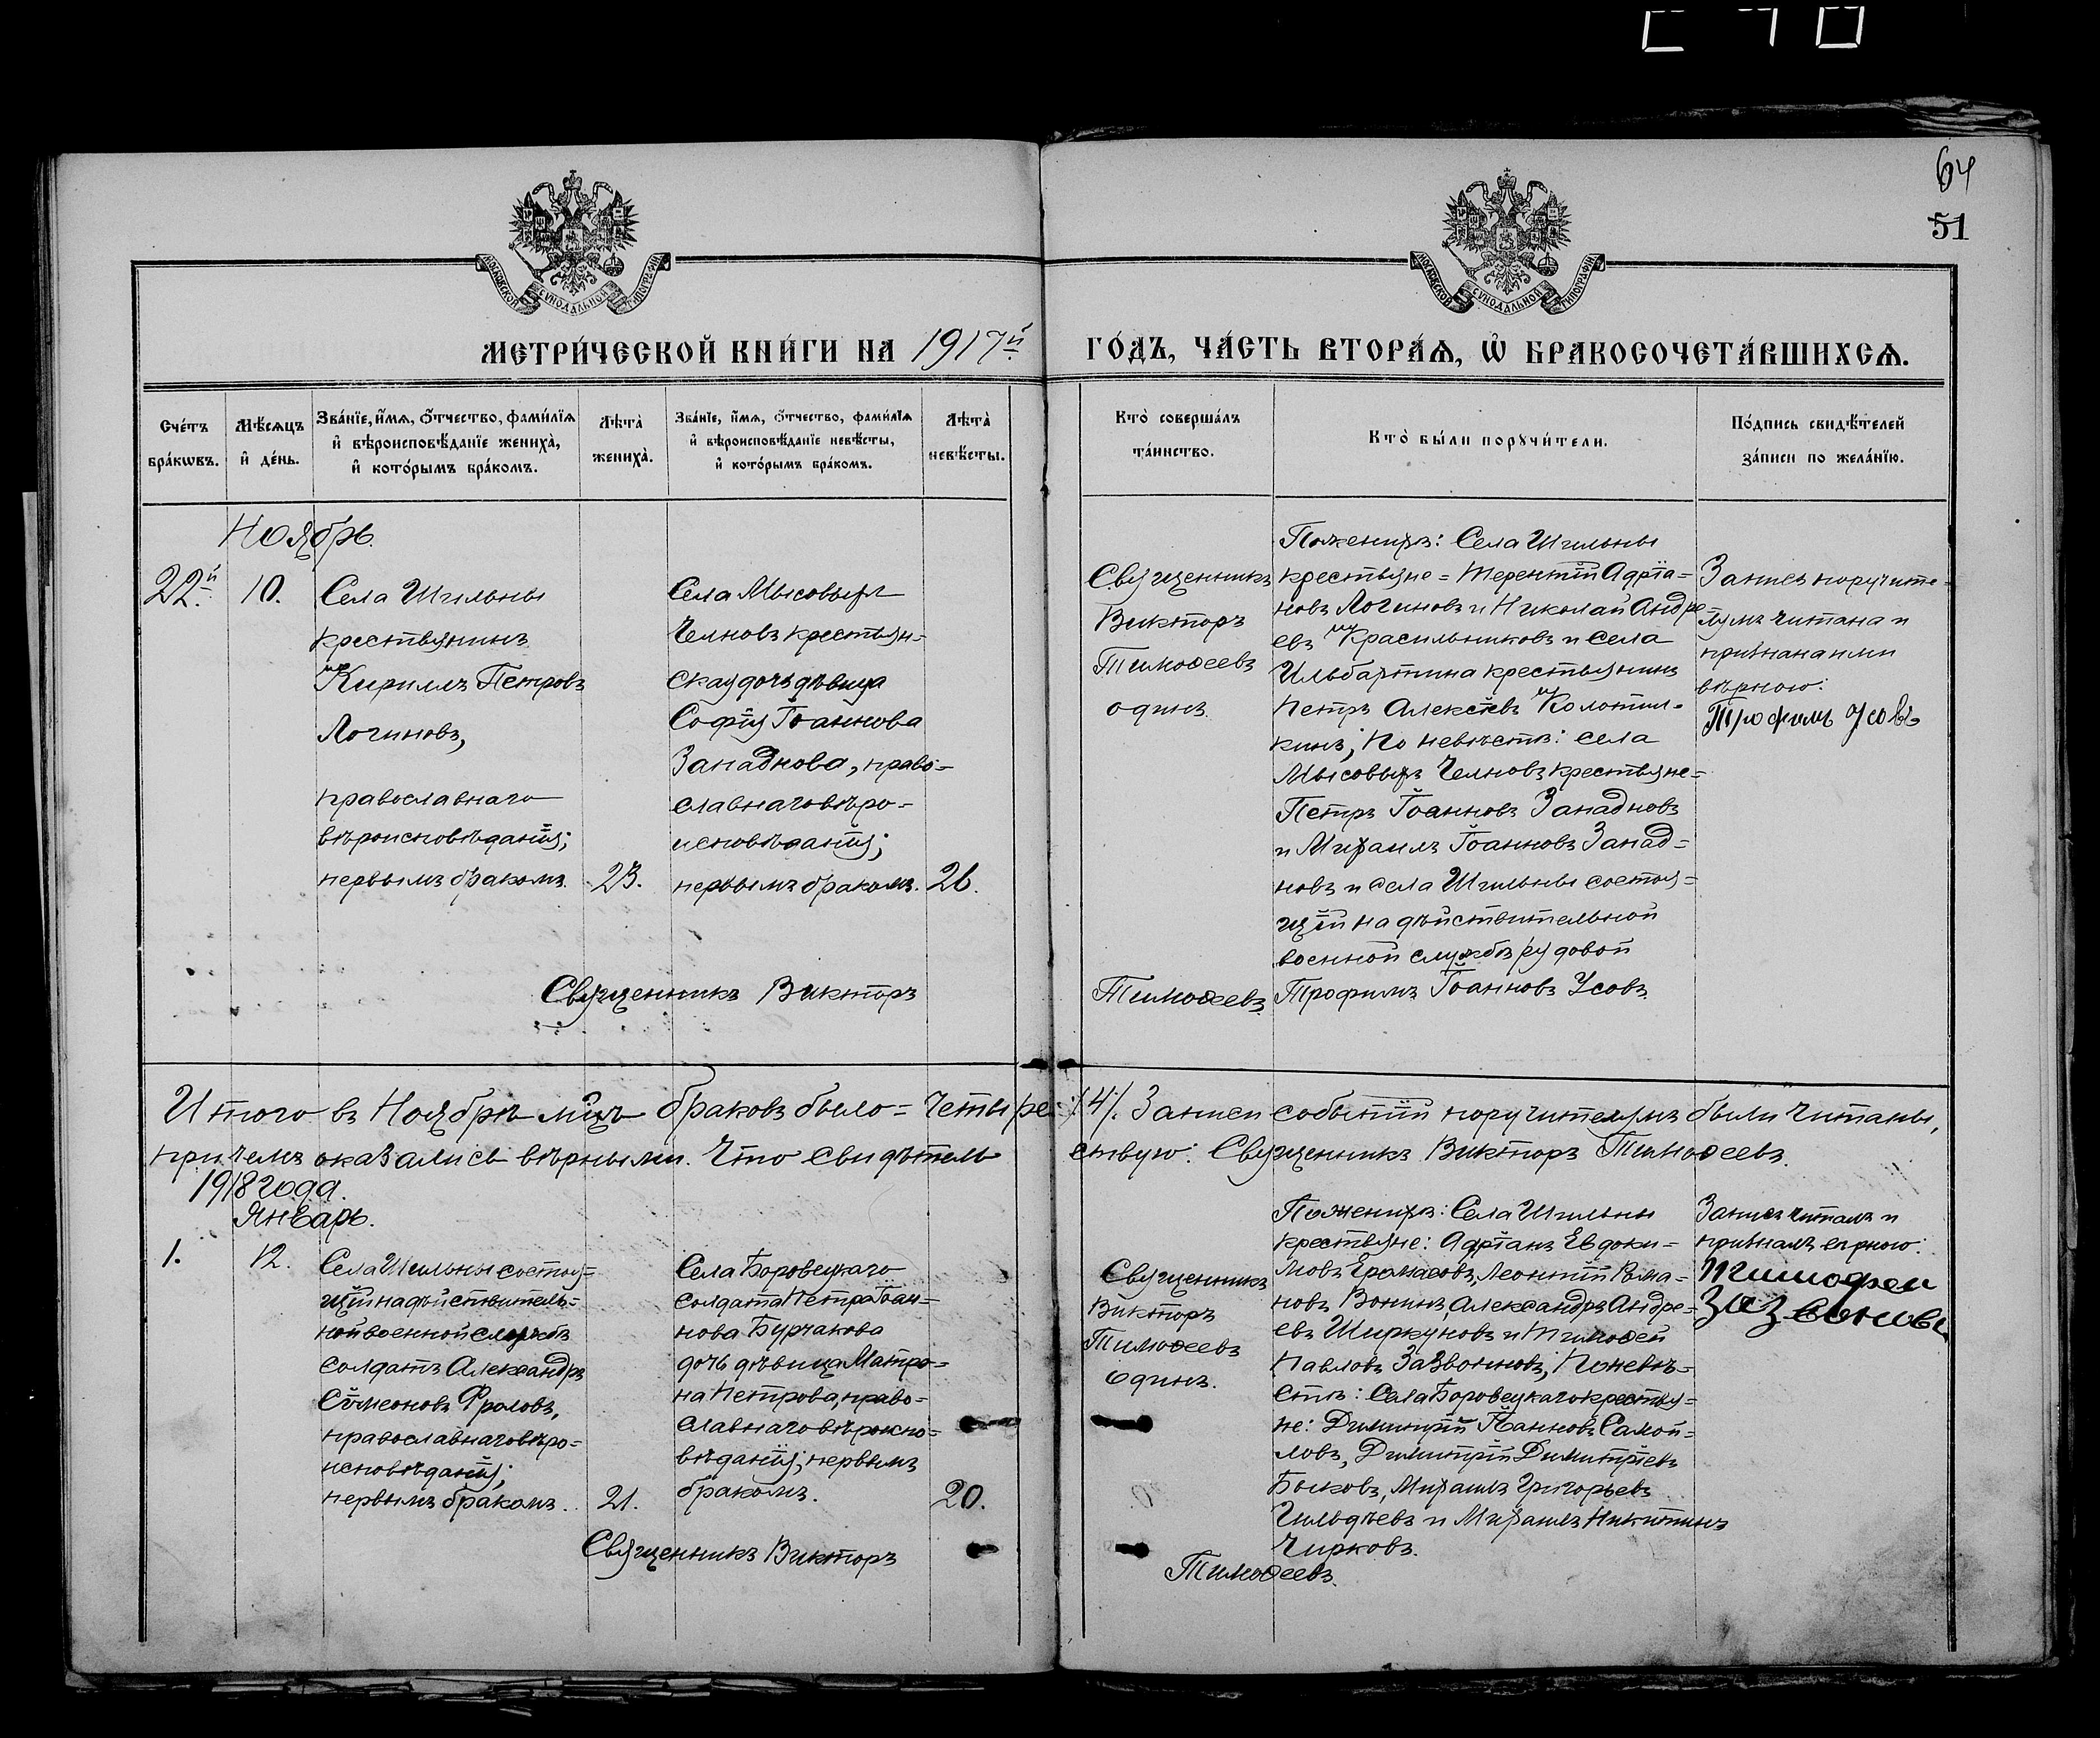 64
51
МОСКОВСКОЙ СѴНОДАЛЬНОЙ ТИПОГРАФІИ
МОСКОВСКОЙ СѴНОДАЛЬНОЙ ТИПОГРАФІИ
МЕТРИ́ЧЕСКОЙ КНИ́ГИ НА 1917й
ГО́ДЪ, ЧА́СТЬ ВТОРА́Ѧ, Ѡ҆ БРАКОСОЧЕТА́ВШИХСѦ.
Сче́тъ бра́кѡвъ.
Мѣ́сѧцъ и҆ де́нь.
Зва́нїе, и҆́мѧ, ѻ҆́тчество, фами́лїѧ
и҆ вѣроисповѣ́данїе жениха̀,
и҆ кото́рымъ бра́комъ.
Лѣта̀ жениха̀.
Зва́нїе, и҆́мѧ, ѻ҆́тчество, фами́лїѧ
и҆ вѣроисповѣ́данїе невѣ́сты,
и҆ кото́рымъ бра́комъ.
Лѣта̀ невѣ́сты.
Кто̀ соверша́лъ та́инство.
Кто̀ бы́ли порꙋчи́тели.
По́дпись свидѣ́телей
за́писи по жела́нїю.
Ноябрь.
22й.
10.
Села Шильны
крестьянинъ
Кириллъ Петровъ
Логиновъ,
православнаго
вѣроисповѣданія;
первымъ бракомъ.
23.
Села Мысовыхъ
Челновъ крестьян=
ская дочь дѣвица
Софія Іоаннова
Западнова, право=
славнаго вѣро=
исповѣданія;
первымъ бракомъ.
26.
Священникъ
Викторъ
Тимоѳеевъ
одинъ.
По женихѣ: Села Шильны
крестьяне = Терентій Адріа=
новъ Логиновъ и Николай Андре
евъ Красильниковъ и села
Ильбахтина крестьянинъ
Петръ Алексѣевъ Колотил=
кинъ; По невѣстѣ: села
Мысовыхъ Челновъ крестьяне=
Петръ Іоанновъ Западновъ
и Михаилъ Іоанновъ Запад=
новъ и села Шильны состоя=
щій на дѣйствительной
военной службѣ рядовой
Трофимъ Іоанновъ Усовъ.
Запись поручите=
лямъ читана и
признана ими
вѣрною:
Трофимъ Усовъ
Священникъ Викторъ Тимоѳеевъ
Итого въ Ноябрѣ мцѣ браковъ было = четыре /4/. Записи событій поручителямъ были читаны,
причемъ оказались вѣрными. Что свидѣтельствую: Священникъ Викторъ Тимоѳеевъ.
1918 года.
Январь.
1.
12.
Села Шильны состоя=
щій на дѣйствитель=
ной военной службѣ
солдатъ Александръ
Сѵмеоновъ Фроловъ,
православнаго вѣро=
исповѣданія;
первымъ бракомъ.
21.
Села Боровецкаго
солдата Петра Іоан=
нова Бурчакова
дочь дѣвица Матро=
на Петрова, право=
славнаго вѣроиспо=
вѣданія; первымъ
бракомъ.
20.
Священникъ
Викторъ
Тимоѳеевъ
одинъ.
По женихѣ: Села Шильны
крестьяне: Адріанъ Евдоки=
мовъ Ермасовъ, Леонтій Рома=
новъ Вонинъ, Александръ Андре=
евъ Ширкуновъ и Тимоѳей
Павловъ Зазвоновъ; По невѣ=
стѣ: Села Боровецкаго крестья=
не: Димитрій Іоанновъ Самой=
ловъ, Димитрій Димитріевъ
Быковъ, Михаилъ Григорьевъ
Гильдѣевъ и Михаилъ Никитинъ
Чирковъ.
Запись читалъ и
призналъ вѣрною:
Тимофеи
Зазвоновъ
Священникъ Викторъ Тимоѳеевъ.